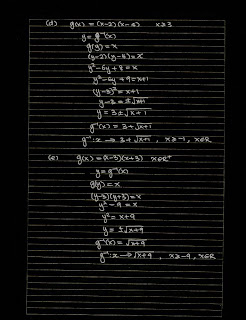 (d) g(x) = (x-2)(x-4) x≥3
y = g⁻¹(x)
g(y) = x
(y-2)(y-4) = x
y²-6y+8 = x
y²-6y+9 = x+1
(y-3)² = x+1
y-3 = ±√x+1
y = 3±√x+1
g⁻¹(x) = 3+√x+1
g⁻¹: x → 3+√x+1, x≥-1, x∈R
(e) g(x) = (x-3)(x+3) x∈R⁺
y = g⁻¹(x)
g(y) = x
(y-3)(y+3) = x
y²-9 = x
y² = x+9
y = ±√x+9
g⁻¹(x) = √x+9
g⁻¹: x → √x+9, x≥-9, x∈R